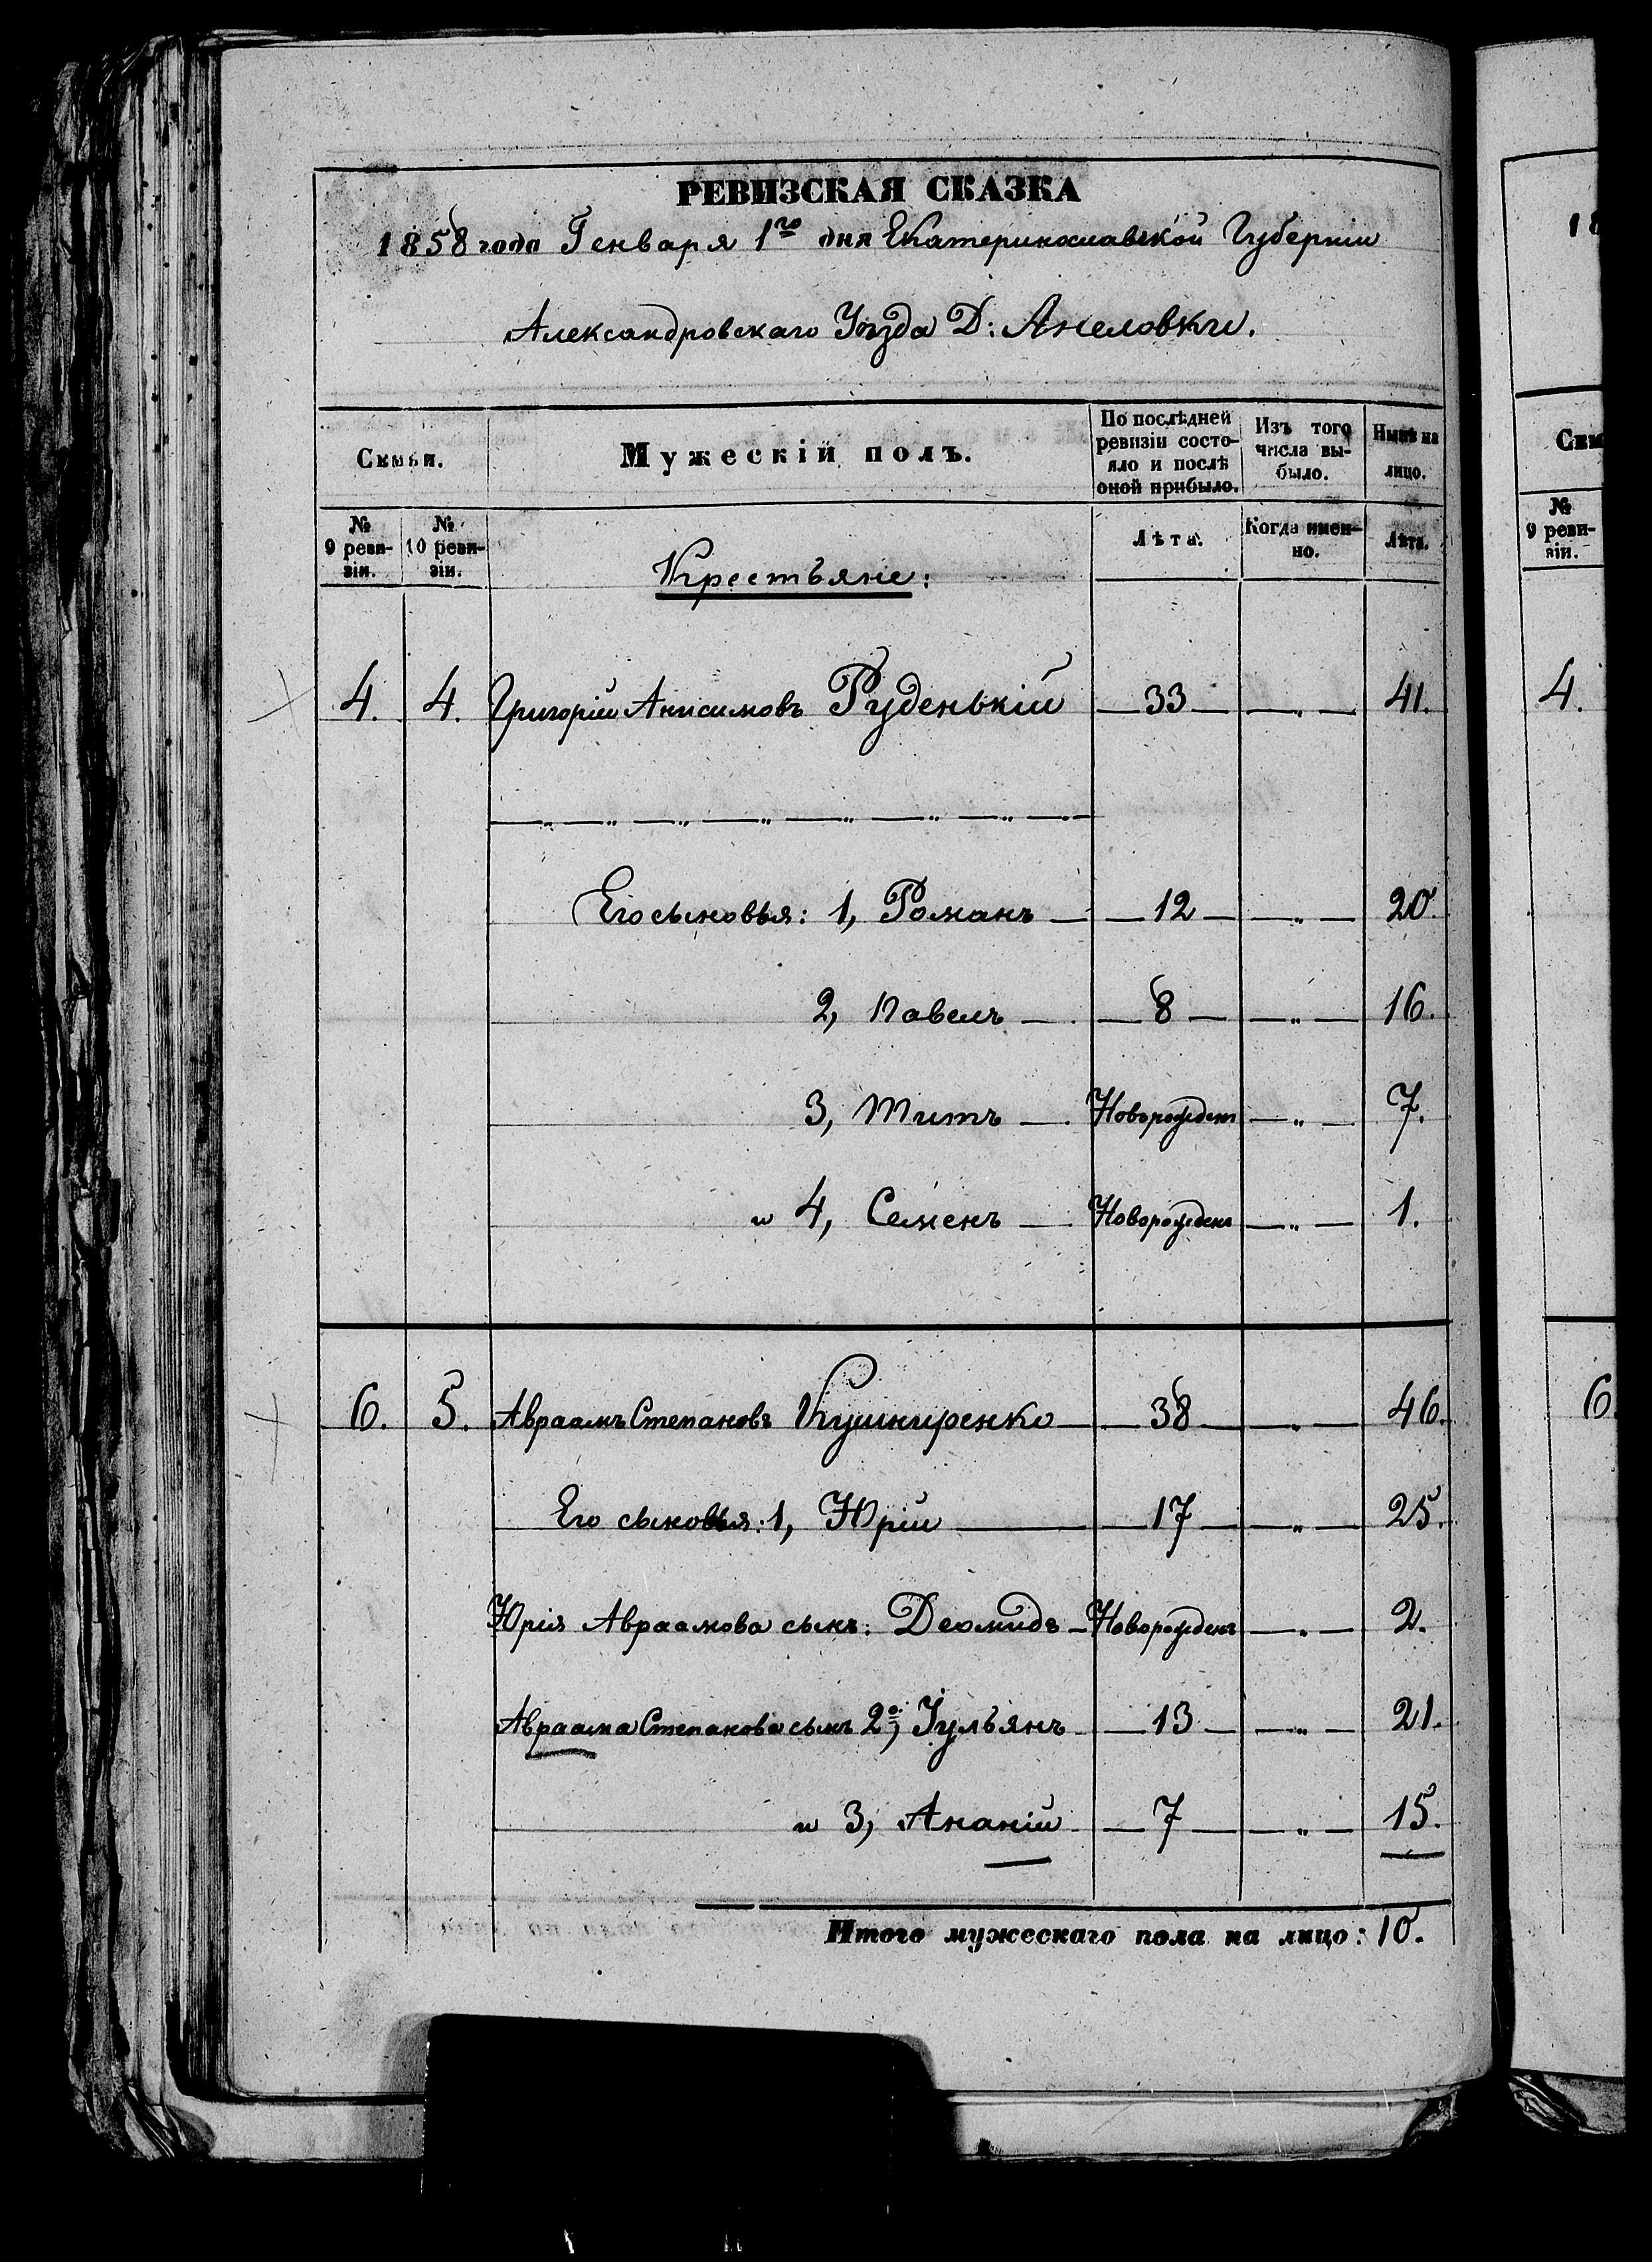 РЕВИЗСКАЯ СКАЗКА
1858 года Генваря 1го дня Екатеринославской Губерніи
Александровскаго Уѣзда Д: Анеловки.
Семьи.
Мужескій полъ.
По послѣдней
ревизіи состо-
яло и послѣ
оной прибыло.
Изъ того
числа вы-
было.
Нынѣ на
лицо.
№
9 реви-
зіи.
№
10 реви-
зіи.
Крестьяне:
Лѣта.
Когда имен-
но.
Лѣта.
4. 4. Григорій Анисимовъ Руденькій 33 41.
Его сыновья: 1, Романъ 12 20.
2, Павелъ 8 16.
3, Титъ Новорожден 7.
и 4, Семенъ Новорожденъ 1.
6. 5. Авраамъ Степановъ Кушниренко 38 46.
Его сыновья: 1, Юрій 17 25.
Юрія Авраамова сынъ: Деомидъ Новорожденъ 2.
Авраама Степанова сынъ 2й, Іульянъ 13 21.
и 3, Ананій 7 15.
Итого мужескаго пола на лицо: 10.
18
Сем
№
9 реви-
зіи.
4.
6